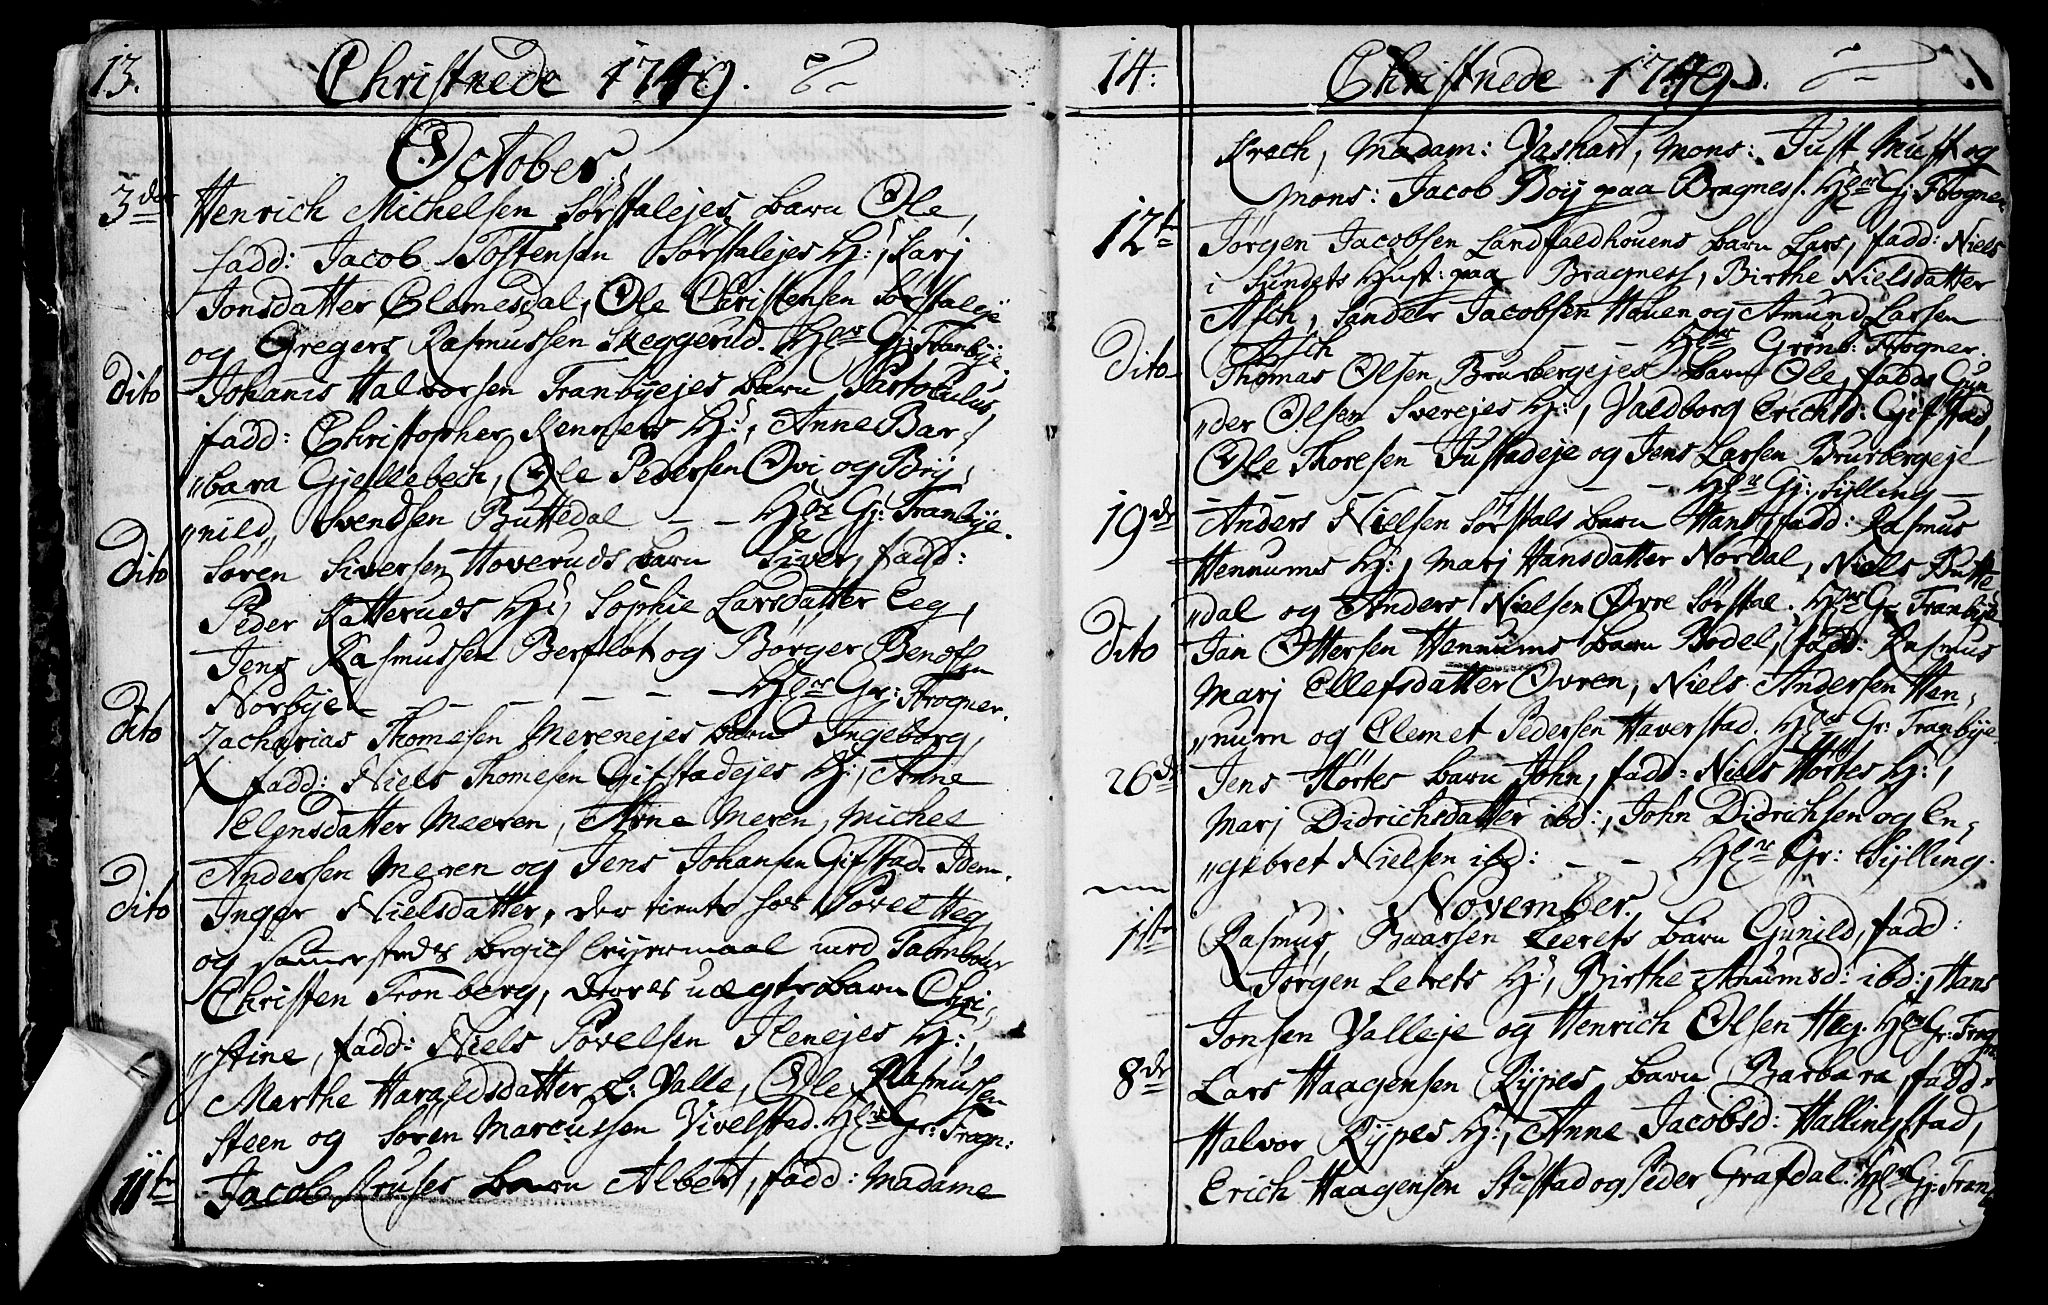 13. Christnede 1749.
October
3de Henrich Michelsen Sørstalejes barn Ole,
fadd: Jacob Tostensen Sørstalejes H:, Karj
Jonsdatter Clemesdal, Ole Christensen Sørstaleje
og Gregers Rasmussen Skeggerud. Hlne Gj: Tranbye.
dito Johanis Halvorsen Tranbyejes barn Partoculus,
fadd: Christopher Renners H:, Anne Bar-
„bara Gjellebech, Ole Pedersen Ovi og Brÿ-
„nild Svendsen Buttedal — — Hlne Gj: Tranbÿe.
Dito Søren Siversen Hoveruds barn Siver, fadd:
Peder Katteruds H:, Sophie Larsdatter Eeg,
Jens Rasmussen Berflot og Børger Bendtsen
Norbÿe — — — — — Hlne Gr: Frogner.
dito Zacharias Thomesen Merenejes barn Ingeborg,
fadd: Niels Thomesen Gifstadejes H:, Anne
Elensdatter Meeren, Arne Meren, Michel
Andersen Meren og Jens Johansen Gifstad. Idem.
dito Inger Nielsdatter, der tiente hos Povel Heg
og sammestedes begick leyermaal med Tambour
Christen Tronberg, deres uægte barn Chri-
„stine, fadd: Niels Povelsen Ilenejes H:,
Marthe Haraldsdatter L: Valle, Ole Rasmussen
Steen og Søren Marcussen Vivelstad. Hlne Gr: Frogn:
11te Jacob Kruses barn Albert, fadd: Madame
14: Christnede 1749.
Krech, Madam: Vashart, Mons: Just Must og
Mons: Jacob Boÿ paa Bragnes. Hlne Gj: Frogner
12te Jørgen Jacobsen Landfaldhouens barn Lars, fadd: Niels
i Sundets Hust: paa Bragness, Birthe Nielsdatter
Asch, Sander Jacobsen Houen og Amund Larsen
Asch — — Hlne Grønb: Frogner.
Dito Thomas Olsen Brurbergejes barn Ole, fadd: Gun
„der Olsen Sverejes H:, Valdborg Erichsd: Gifstad,
Ole Thoresen Justadeje og Jens Larsen Brurbergeje
— — — Hlne Gj: Sÿlling —
19de Anders Nielsen Sørstals barn Hans, fadd: Rasmus
Hennums H:, Marj Hansdatter Nordal, Niels Butte-
„dal og Anders Nielsen Øvre Sørstal. Hlne Gr: Tranbÿe
Dito Jan Ottersen Hennums barn Bodel, fadd: Rasmus
Marj Ellefsdatter Ovren, Niels Andersen Hen-
„num og Clemet Pedersen Haverstad. Hlne Gr: Tranbÿe.
26de Jens Hörtes barn John, fadd: Niels Hörtes H:,
Marj Didrichsdatter ibd:, John Didrichsen og En-
„gebret Nielsen ibd: — — Hlne Gr: Sÿlling.
November.
1ste Rasmus Baarsen Leerets barn Gunild, fadd:
Jørgen Lerets H:, Birthe Anumsd: ibd:, Hans
Jonsen Valleje og Henrich Olsen Heg. Hlne Gr: Frogn
8de Lars Haagensen Rÿpes barn Barbara, fadd:
Halvor Rÿpes H:, Anne Jacobsd: Hallingstad,
Erich Haagensen Stustad og Peder Grafdal. Hlne Gj: Tranb